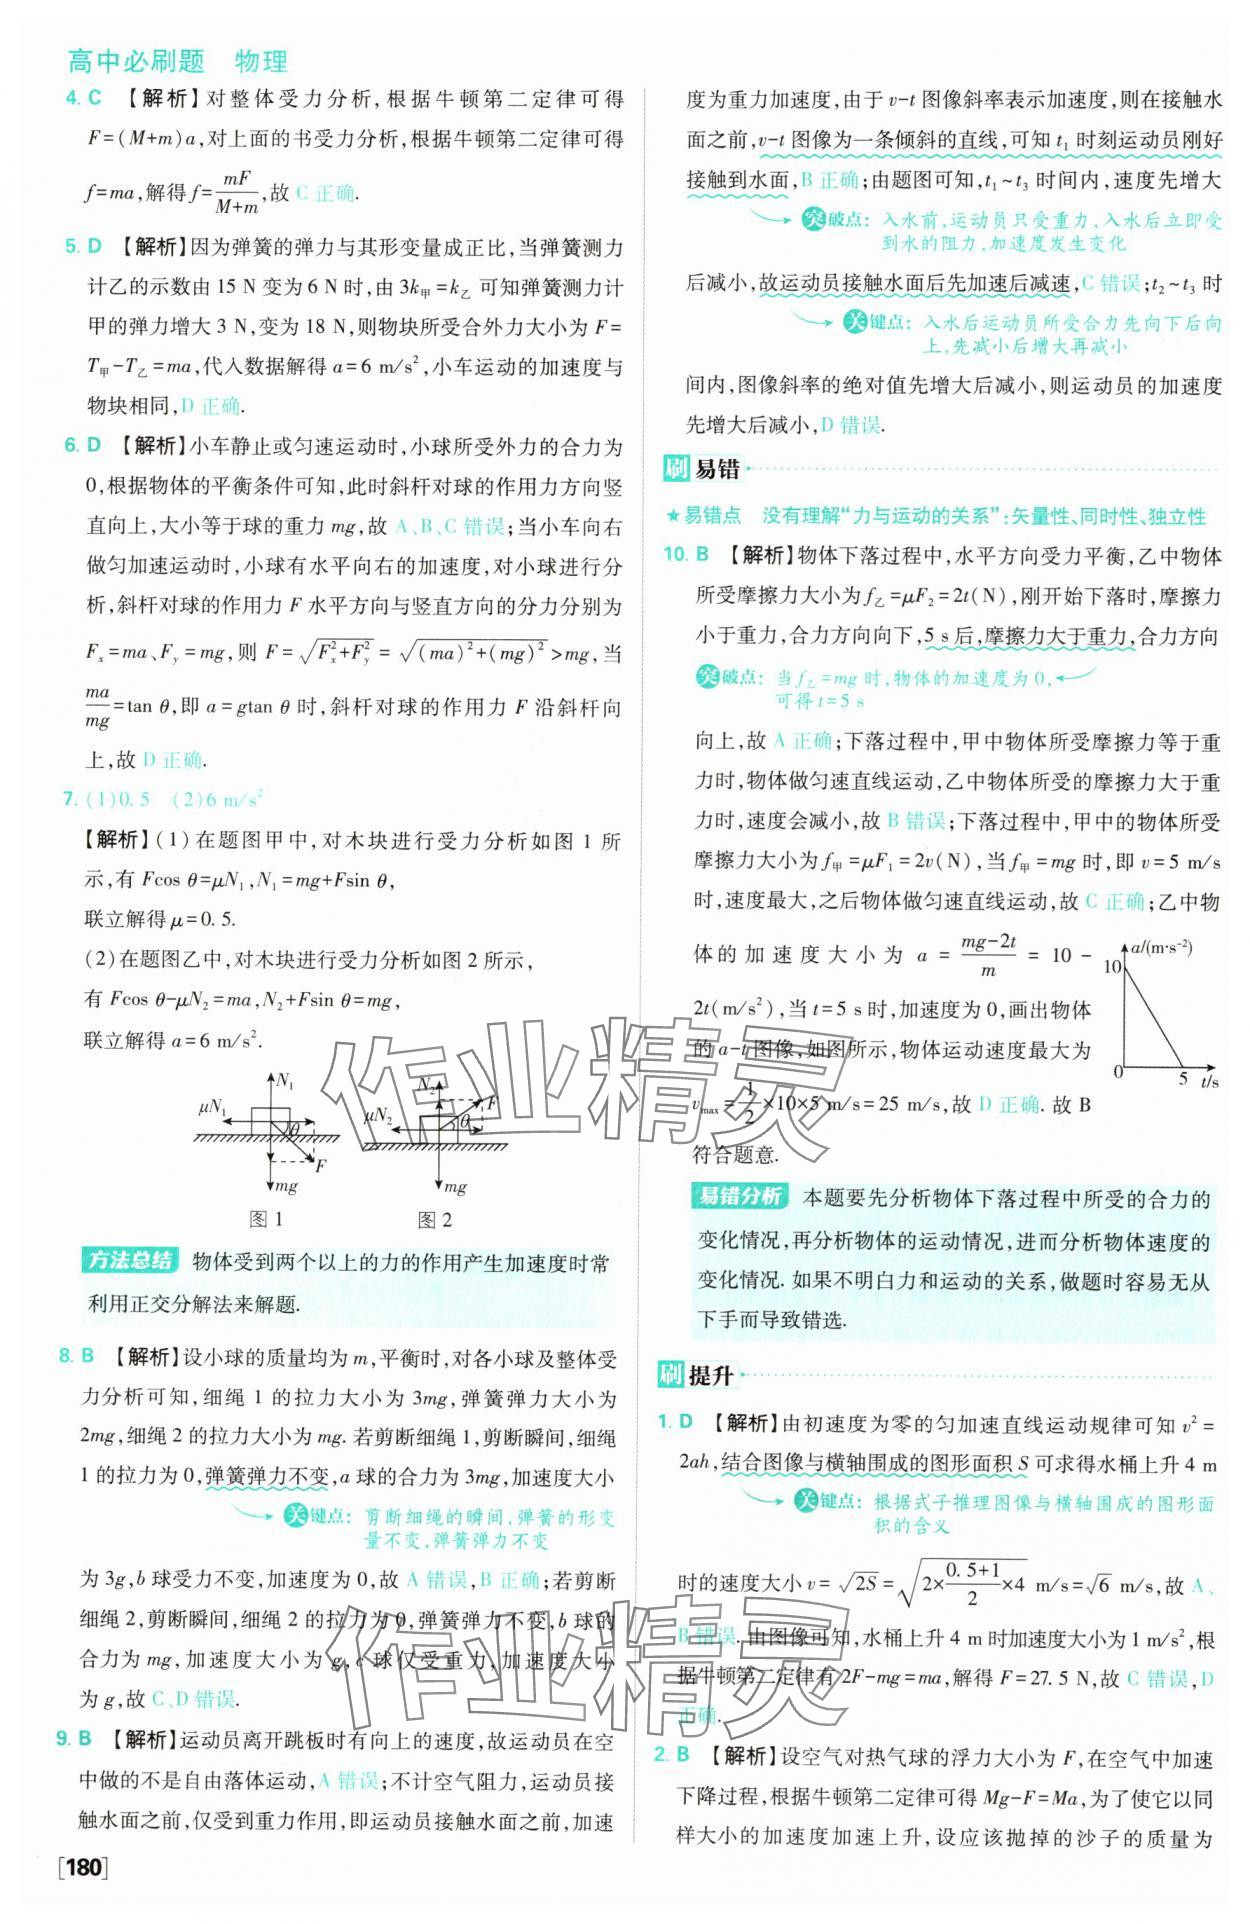 高中必刷题 物理
4. C 【解析】对整体受力分析,根据牛顿第二定律可得
F=(M+m)a,对上面的书受力分析,根据牛顿第二定律可得
f=ma,解得f=mF/(M+m),故 C 正确.
5. D 【解析】因为弹簧的弹力与其形变量成正比,当弹簧测力
计乙的示数由 15 N 变为 6 N 时,由 3k甲=k乙 可知弹簧测力计
甲的弹力增大 3 N,变为 18 N,则物块所受合外力大小为 F=
T甲-T乙=ma,代入数据解得 a=6 m/s²,小车运动的加速度与
物块相同,D 正确.
6. D 【解析】小车静止或匀速运动时,小球所受外力的合力为
0,根据物体的平衡条件可知,此时斜杆对球的作用力方向竖
直向上,大小等于球的重力 mg,故 A、B、C 错误;当小车向右
做匀加速运动时,小球有水平向右的加速度,对小球进行分
析,斜杆对球的作用力 F 水平方向与竖直方向的分力分别为
Fₓ=ma、F_y=mg,则 F=√(Fₓ²+F_y²)=√((ma)²+(mg)²)>mg,当
ma/mg=tan θ,即 a=gtan θ 时,斜杆对球的作用力 F 沿斜杆向
上,故 D 正确.
7. (1)0.5 (2)6 m/s²
【解析】(1)在题图甲中,对木块进行受力分析如图 1 所
示,有 Fcos θ=μN₁,N₁=mg+Fsin θ,
联立解得 μ=0.5.
(2)在题图乙中,对木块进行受力分析如图 2 所示,
有 Fcos θ-μN₂=ma,N₂+Fsin θ=mg,
联立解得 a=6 m/s².
N₁
μN₁
θ
F
mg
图 1
N₂
μN₂
F
θ
mg
图 2
方法总结 物体受到两个以上的力的作用产生加速度时常
利用正交分解法来解题.
8. B 【解析】设小球的质量均为 m,平衡时,对各小球及整体受
力分析可知,细绳 1 的拉力大小为 3mg,弹簧弹力大小为
2mg,细绳 2 的拉力大小为 mg. 若剪断细绳 1,剪断瞬间,细绳
1 的拉力为 0,弹簧弹力不变,a 球的合力为 3mg,加速度大小
关键点: 剪断细绳的瞬间,弹簧的形变
量不变,弹簧弹力不变
为 3g,b 球受力不变,加速度为 0,故 A 错误,B 正确;若剪断
细绳 2,剪断瞬间,细绳 2 的拉力为 0,弹簧弹力不变,b 球的
合力为 mg,加速度大小为 g,c 球仅受重力,加速度大小
为 g,故 C、D 错误.
9. B 【解析】运动员离开跳板时有向上的速度,故运动员在空
中做的不是自由落体运动,A 错误;不计空气阻力,运动员接
触水面之前,仅受到重力作用,即运动员接触水面之前,加速
[180]
度为重力加速度,由于 v-t 图像斜率表示加速度,则在接触水
面之前,v-t 图像为一条倾斜的直线,可知 t₁ 时刻运动员刚好
接触到水面,B 正确;由题图可知,t₁~t₃ 时间内,速度先增大
突破点: 入水前,运动员只受重力,入水后立即受
到水的阻力,加速度发生变化
后减小,故运动员接触水面后先加速后减速,C 错误;t₂~t₃ 时
关键点: 入水后运动员所受合力先向下后向
上,先减小后增大再减小
间内,图像斜率的绝对值先增大后减小,则运动员的加速度
先增大后减小,D 错误.
刷 易错
★易错点 没有理解“力与运动的关系”:矢量性、同时性、独立性
10. B 【解析】物体下落过程中,水平方向受力平衡,乙中物体
所受摩擦力大小为f乙=μF₂=2t(N),刚开始下落时,摩擦力
小于重力,合力方向向下,5 s 后,摩擦力大于重力,合力方向
突破点: 当 f乙=mg 时,物体的加速度为 0,
可得 t=5 s
向上,故 A 正确;下落过程中,甲中物体所受摩擦力等于重
力时,物体做匀速直线运动,乙中物体所受的摩擦力大于重
力时,速度会减小,故 B 错误;下落过程中,甲中的物体所受
摩擦力大小为 f甲=μF₁=2v(N),当 f甲=mg 时,即 v=5 m/s
时,速度最大,之后物体做匀速直线运动,故 C 正确;乙中物
体的加速度大小为 a=(mg-2t)/m=10-
2t(m/s²),当 t=5 s 时,加速度为 0,画出物体
的 a-t 图像,如图所示,物体运动速度最大为
v_max=1/2×10×5 m/s=25 m/s,故 D 正确. 故 B
符合题意.
a/(m·s⁻²)
10
0
5
t/s
易错分析 本题要先分析物体下落过程中所受的合力的
变化情况,再分析物体的运动情况,进而分析物体速度的
变化情况. 如果不明白力和运动的关系,做题时容易无从
下手而导致错选.
刷 提升
1. D 【解析】由初速度为零的匀加速直线运动规律可知 v²=
2ah,结合图像与横轴围成的图形面积 S 可求得水桶上升 4 m
关键点: 根据式子推理图像与横轴围成的图形面
积的含义
时的速度大小 v=√(2S)=√(2×(0.5+1)/2×4) m/s=√6 m/s,故 A、
B 错误. 由图像可知,水桶上升 4 m 时加速度大小为 1 m/s²,根
据牛顿第二定律有 2F-mg=ma,解得 F=27.5 N,故 C 错误,D
正确.
2. B 【解析】设空气对热气球的浮力大小为 F,在空气中加速
下降过程,根据牛顿第二定律可得 Mg-F=Ma,为了使它以同
样大小的加速度加速上升,设应该抛掉的沙子的质量为
作业精灵
作业精灵